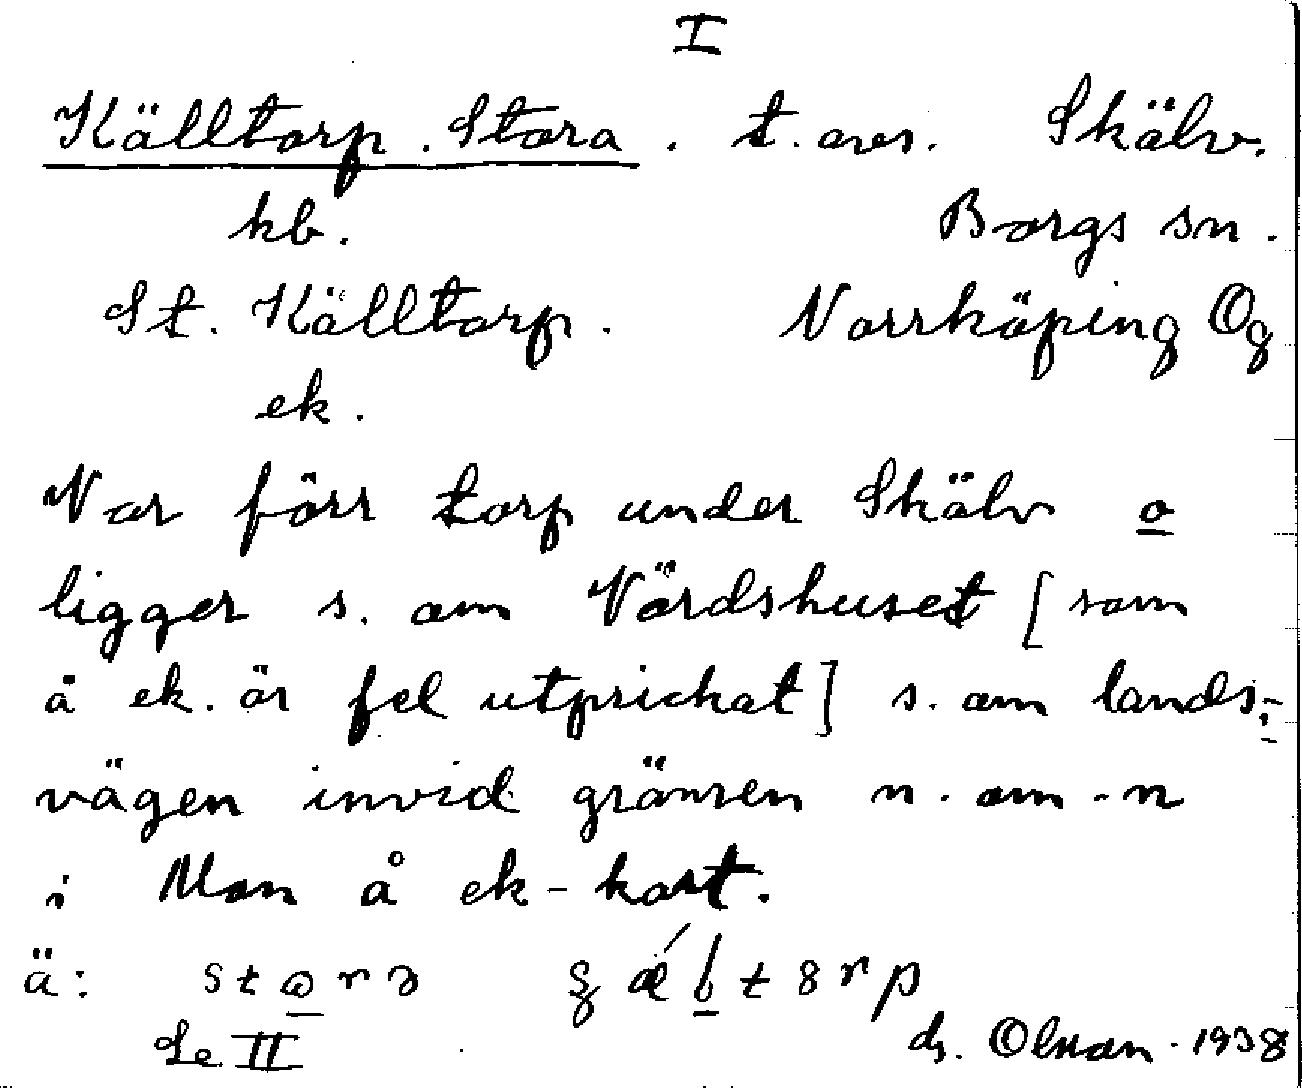 I
Källtorp. Stora. t. avs. Skälv.
hb. Borgs sn.
St. Källtorp. Norrköping Ög
ek.
Var förr torp under Skälv o
ligger s. om Värdshuset [som
å ek. är fel utprickat] s. om lands-
vägen invid gränsen n. om -n
i Mon å ek-kart.
ä:
Se II ds. Olsson. 1938